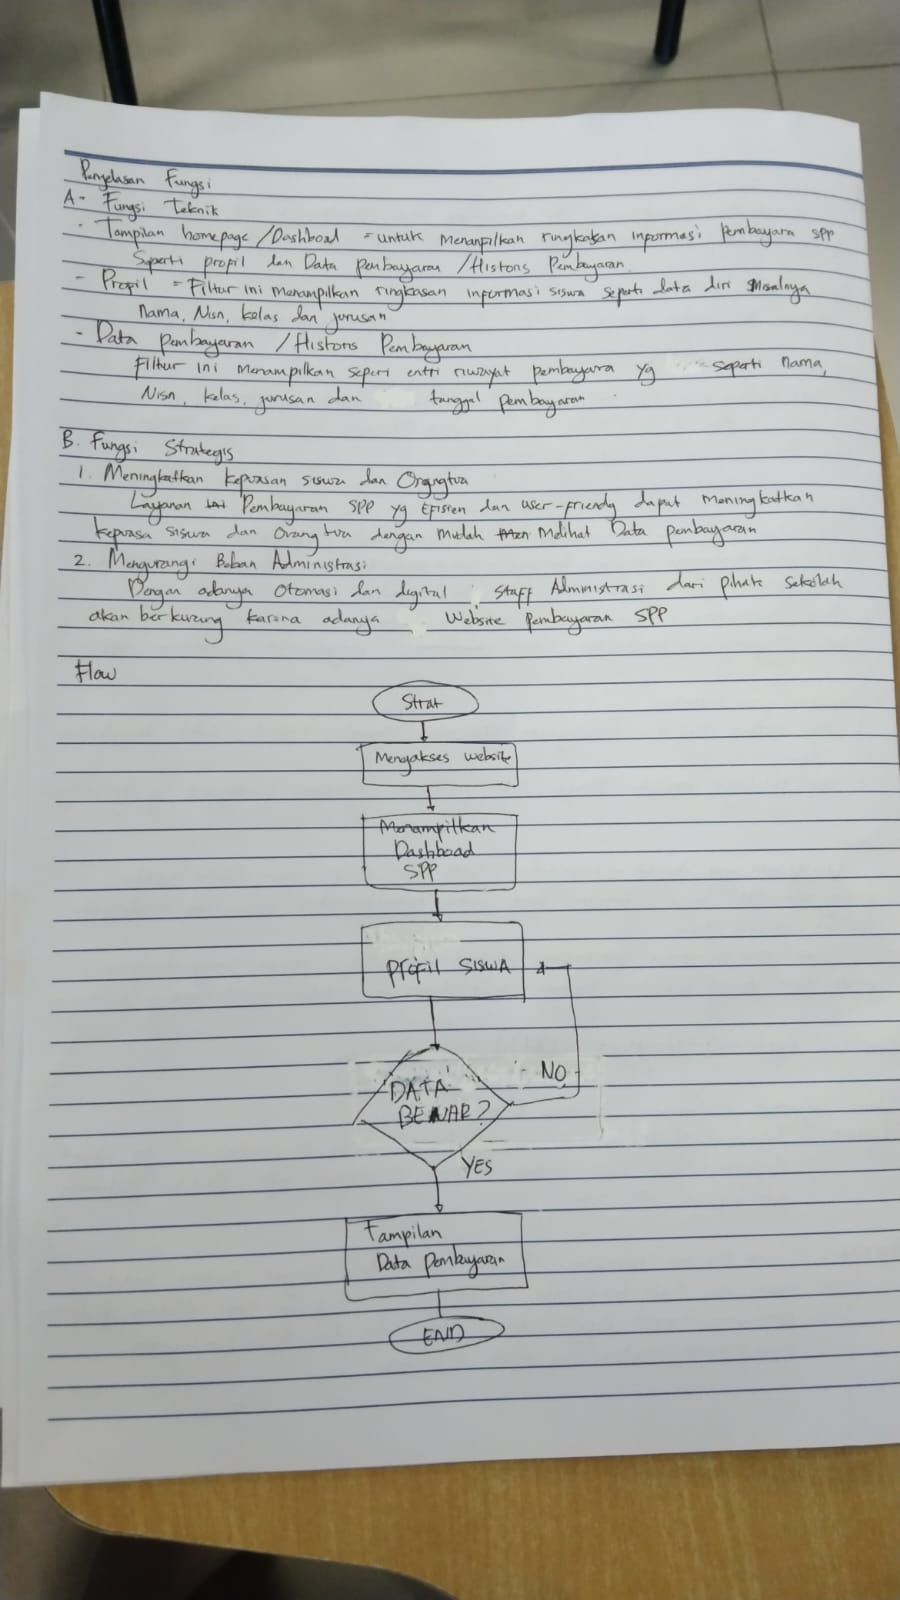 Penjelasan Fungsi
A- Fungsi Teknik
- Tampilan homepage /Dashboad = untuk Menampilkan ringkasan informasi pembayara SPP
Seperti propil dan Data pembayaran /Historis Pembayaran.
- Propil = Fiturr ini menampilkan ringkasan informasi siswa seperti data diri Misalnya
Nama, Nisn, kelas dan jurusan
- Data pembayaran /Historis Pembayaran
Fiturr ini menampilkan seperi entri riwayat pembayara yg seperti nama,
Nisn, kelas, jurusan dan tanggal pembayaran
B. Fungsi Strategis
1. Meningkatkan kepuasan siswa dan Orangtua
Layanan Pembayaran SPP yg Efisien dan user-friendy dapat meningkatkan
kepuasa siswa dan Orang tua dengan mudah Melihat Data pembayaran
2. Mengurangi Beban Administrasi
Dengan adanya otomasi dan digital Staff Administrasi dari pihak sekolah
akan berkurang karena adanya Website pembayaran SPP
Flow
Strat
Mengakses website
Menampilkan
Dashboad
SPP
Profil SISWA
DATA
BENAR?
NO
YES
Tampilan
Data pembayaran
END